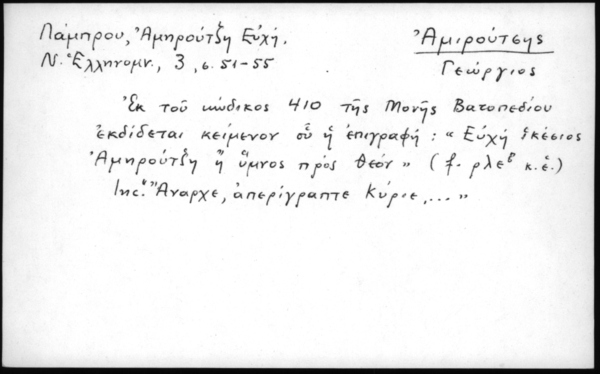 Λάμπρου, Ἀμηρούτζη Εὐχή.
Ν. Ἑλληνομν., 3, σ. 51-55
Ἀμιρούτσης
Γεώργιος
Ἐκ τοῦ κώδικος 410 τῆς Μονῆς Βατοπεδίου
ἐκδίδεται κείμενον οὗ ἡ ἐπιγραφή: « Εὐχὴ ἱκέσιος
Ἀμηρούτζη ἢ ὕμνος πρὸς θεόν » (φ. ρλε^β κ.ἑ.)
Inc. "Ἄναρχε, ἀπερίγραπτε Κύριε,... »